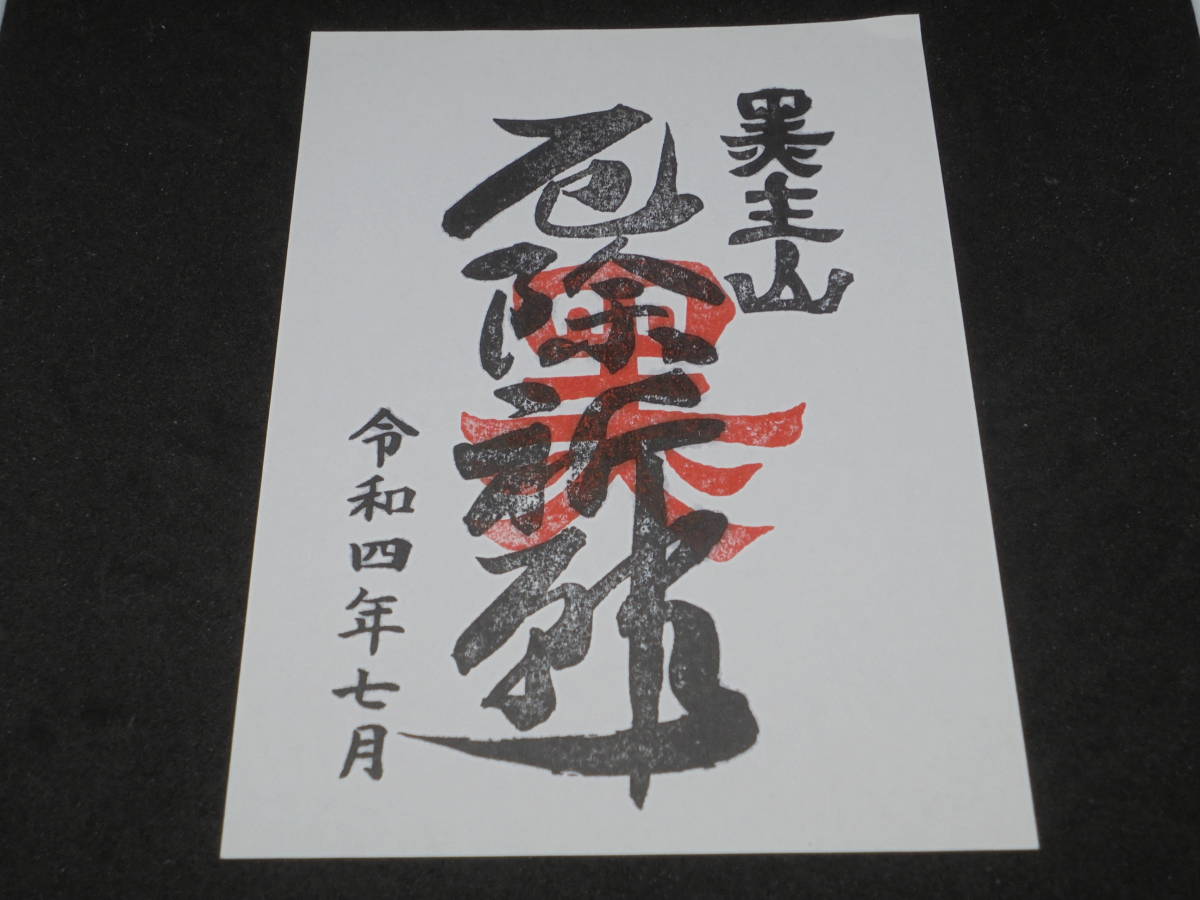 黒主山
厄除祈願
令和四年七月